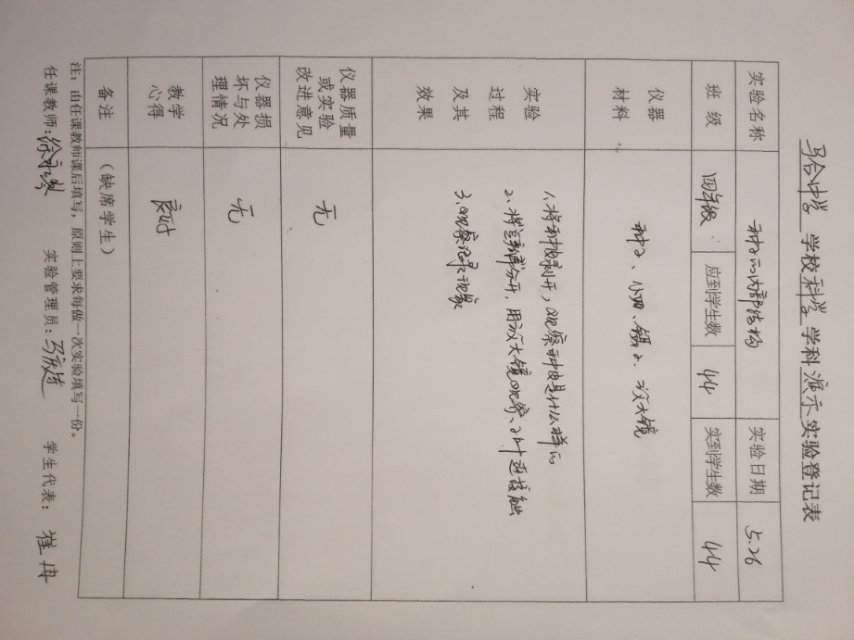 马合中学 学校 科学 学科 演示 实验登记表
实验名称 种子的内部结构 实验日期 5.26
班级 四年级 应到学生数 44 实到学生数 44
仪器
材料
种子、小刀、镊子、放大镜
实验
过程
及其
效果
1、将种皮剥开,观察种皮是什么样的
2、将豆瓣分开,用放大镜观察、
3、观察记录现象
仪器质量
或实验
改进意见
无
仪器损
坏与处
理情况
无
教学
心得
良好
备注
(缺席学生)
注:由任课教师课后填写,原则上要求每做一次实验填写一份。
任课教师:徐 实验管理员:马 学生代表:崔冉